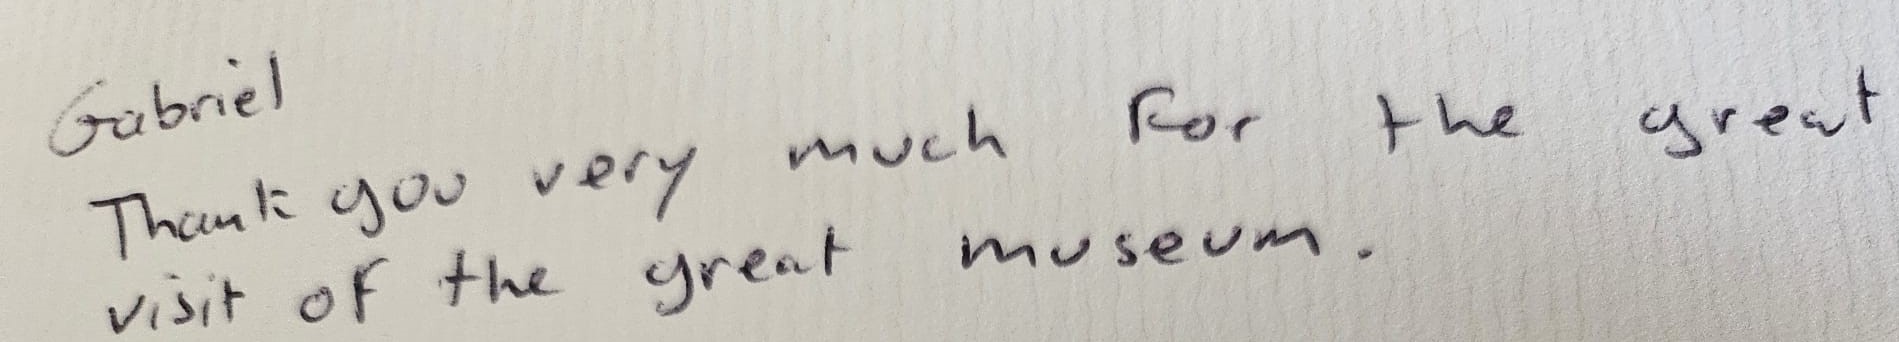 Gabriel
Thank you very much for the great
visit of the great museum.